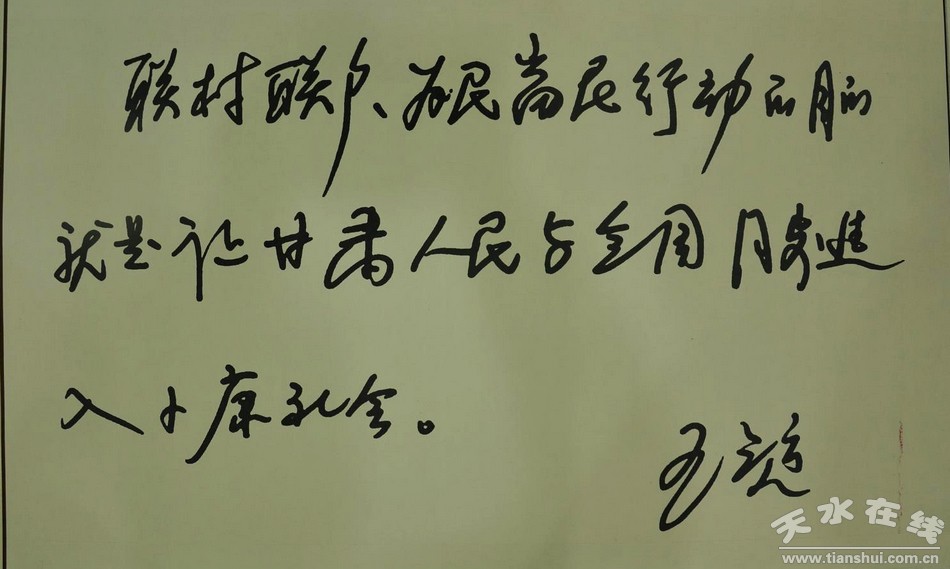 联村联户、为民富民行动的目的
就是让甘肃人民与全国同步进
入小康社会。
王
天水在线
www.tianshui.com.cn